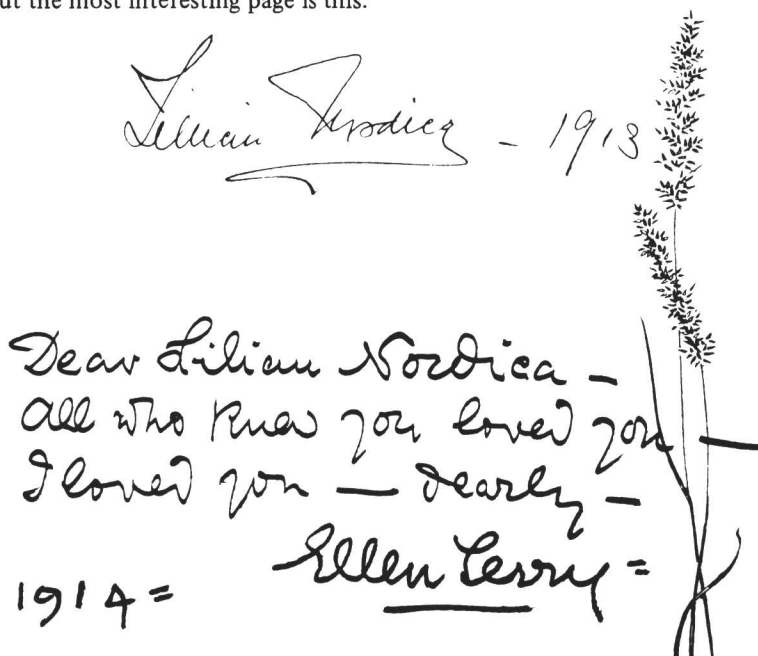 ut the most interesting page is this.
Lillian Nordica - 1913
Dear Lilian Nordica -
All who knew you loved you —
I loved you — dearly -
Ellen Terry =
1914 =